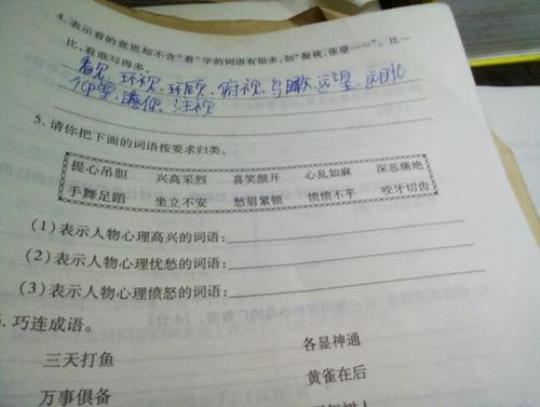 4. 表示看的意思却不含“看”字的词语有很多,如“凝视、张望……”。比一
比,看谁写得多。
看见、环视、环顾、俯视、鸟瞰、远望、
仰望、瞻仰、注视
5. 请你把下面的词语按要求归类。
提心吊胆 兴高采烈 喜笑颜开 心乱如麻 深恶痛绝
手舞足蹈 坐立不安 愁眉紧锁 愤愤不平 咬牙切齿
(1)表示人物心理高兴的词语:
(2)表示人物心理忧愁的词语:
(3)表示人物心理愤怒的词语:
. 巧连成语。
三天打鱼 各显神通
万事俱备 黄雀在后